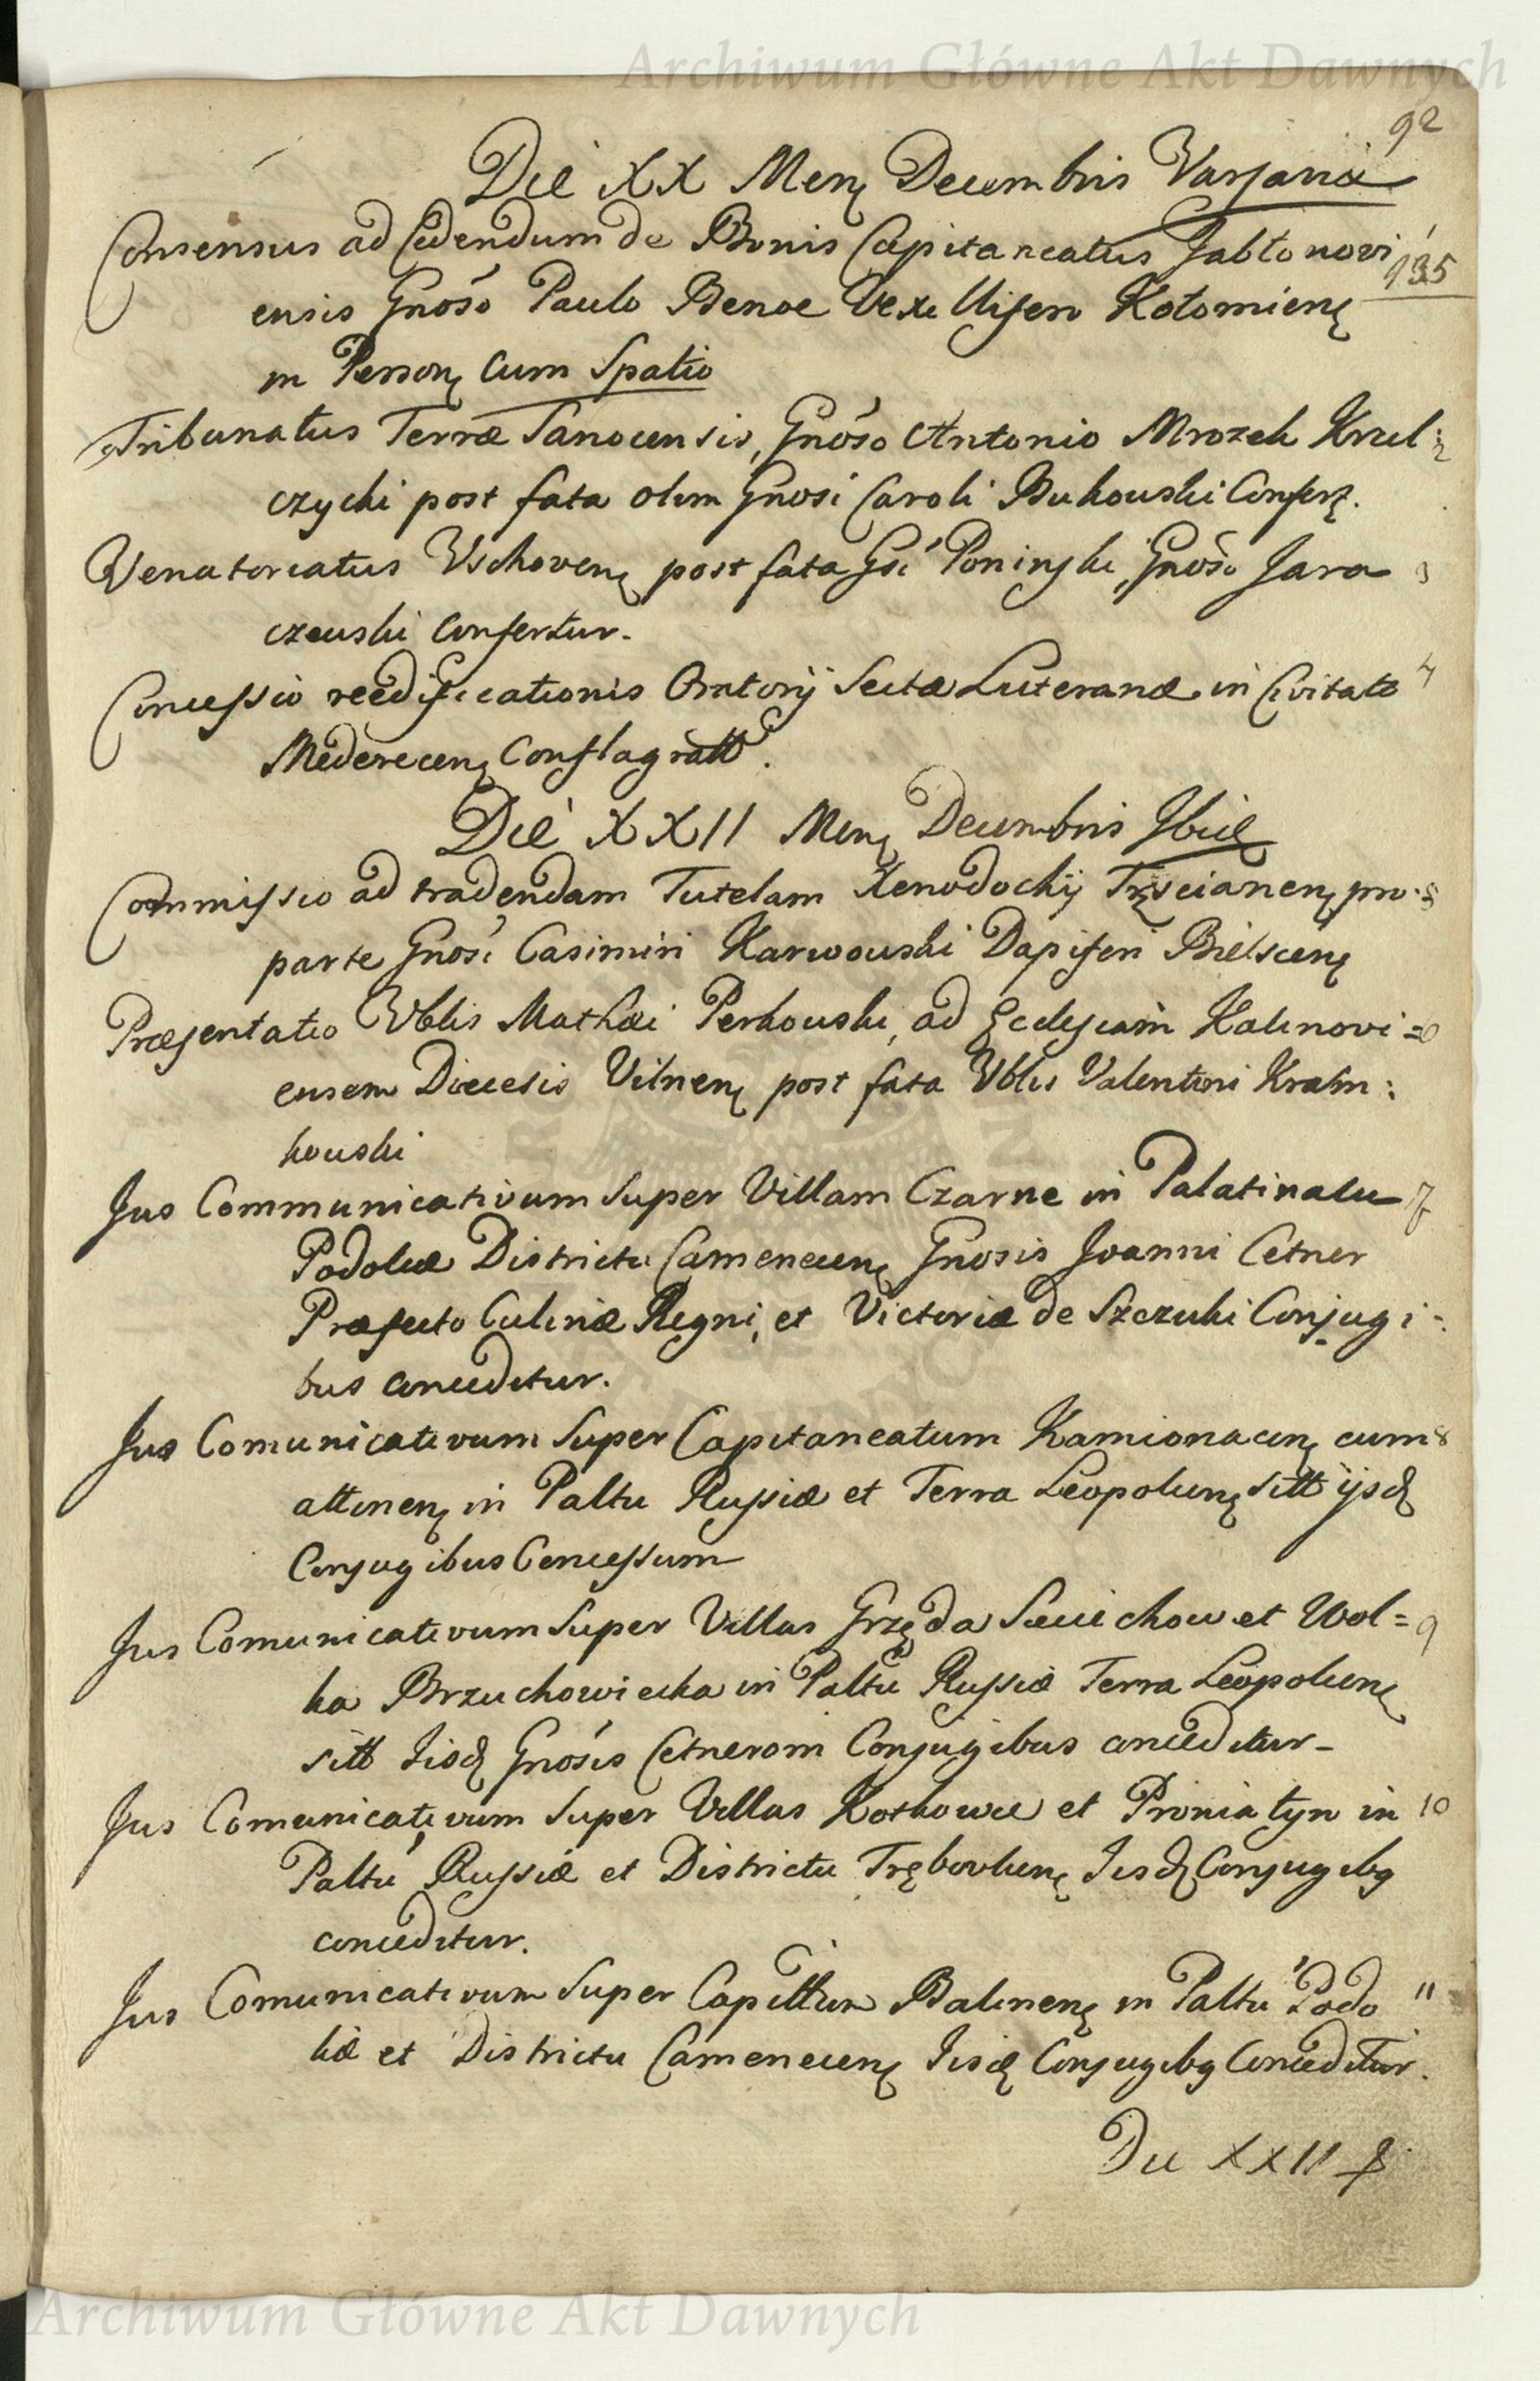 Archiwum Główne Akt Dawnych
92
Die XX Menę Decembris Varsaviæ
Consensus ad Cedendum de Bonis Capitaneatus Jabłonovi 1
135
ensis Gnoso Paulo Benoe Vexillifero Kołomienę
in Personę cum Spatio
Tribunatus Terræ Sanocensis, Gnoso Antonio Mrozek Krzel: 2
czycki post fata olim Gnosi Caroli Bukowski Confert.
Venatoriatus Vschovenę post fata Gsi Poninski, Gnoso Jara 3
czewski Confertur.
Concessio reedificationis Oratorij Sectæ Luteranæ in Civitate 4
Mederecenę Conflagratt.
Die XXII Menę Decembris Ibid
Commissio ad tradendam Tutelam Xenodochij Trzscianenę pro. 5
parte Gnosi Casimiri Karwowski Dapiferi Bielscenę
Præsentatio Vblis Mathæi Perkowski, ad Ecclesiam Kalinovi= 6
ensem Diecesis Vilnenę post fata Vblis Valentini Kram:
kowski
Jus Communicativum Super Villam Czarne in Palatinatu 7
Podoliæ Districtu Camenecenę Gnosis Joanni Cetner
Præfecto Culinæ Regni, et Victoriæ de Szczuki Conjugi:
bus conceditur.
Jus Comunicativum Super Capitaneatum Kamionacenę cum 8
attinenę in Paltu Russiæ et Terra Leopolienę sitt ijsd
Conjugibus Concessum
Jus Comunicativum Super Villas Grzęda Sieciechow et Wol= 9
ka Brzuchowiecka in Paltu Russiæ Terra Leopolienę
sitt Iisd Gnosis Cetnerom Conjugibus conceditur-
Jus Comunicativum Super Villas Kozkowce et Proniatyn in 10
Paltu Russiæ et Districtu Trębovlienę Iisd Conjugibę
conceditur.
Jus Comunicativum Super Capittum Balinenę in Paltu Podo 11
liæ et Districtu Camenecenę Iisd Conjugibę Conceditur.
Die XXII
Archiwum Główne Akt Dawnych